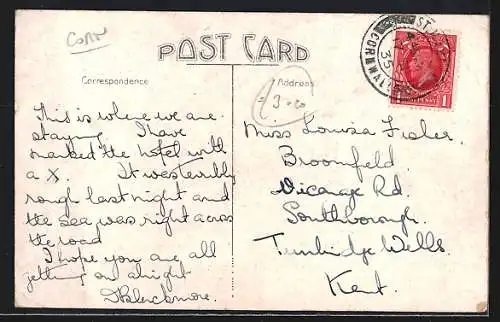 CORN
POST CARD
Correspondence
Address
3.00
This is where we are
staying. I have
marked the hotel with
a X. It was terribly
rough last night and
the sea was right across
the road
I hope you are all
getting on alright
D Blackmore.
Miss Louisa Fisher.
Broomfield.
Vicarage Rd
Southborough.
Tunbridge Wells.
Kent.
ST.
35
CORNWALL
PENNY
1